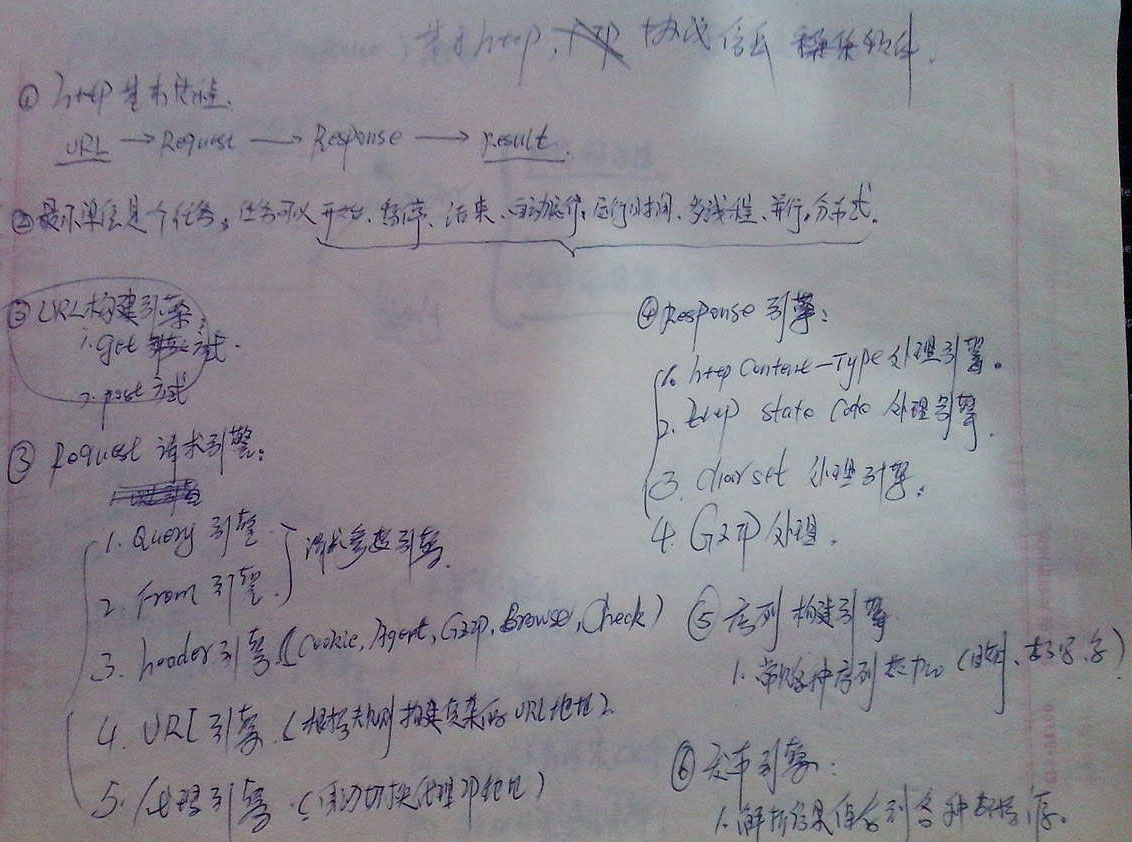 基于http, 协议信息 软件.
① http基本
URL → Request → Response → result.
② 最小单位是个任务。任务可以开始、暂停、结束、自动运行、运行时间、多线程、并行、分布式.
③ URL构建引擎:
1. get 方式.
2. post 方式
③ Request 请求引擎:
1. Query 引擎.
2. From 引擎.
请求参数引擎.
3. header引擎.(Cookie, Agent, Gzip, Browse, Check)
4. URL引擎.(根据规则构建复杂的URL地址).
5. 代理引擎.(自动切换代理IP地址)
④ Response 引擎:
1. http Content-Type 处理引擎.
2. http state Code 处理引擎.
3. charset 处理引擎.
4. Gzip 处理.
⑤ 序列构建引擎.
1. 序列
⑥ 发布引擎.
1. 解析结果保存到各种数据库.